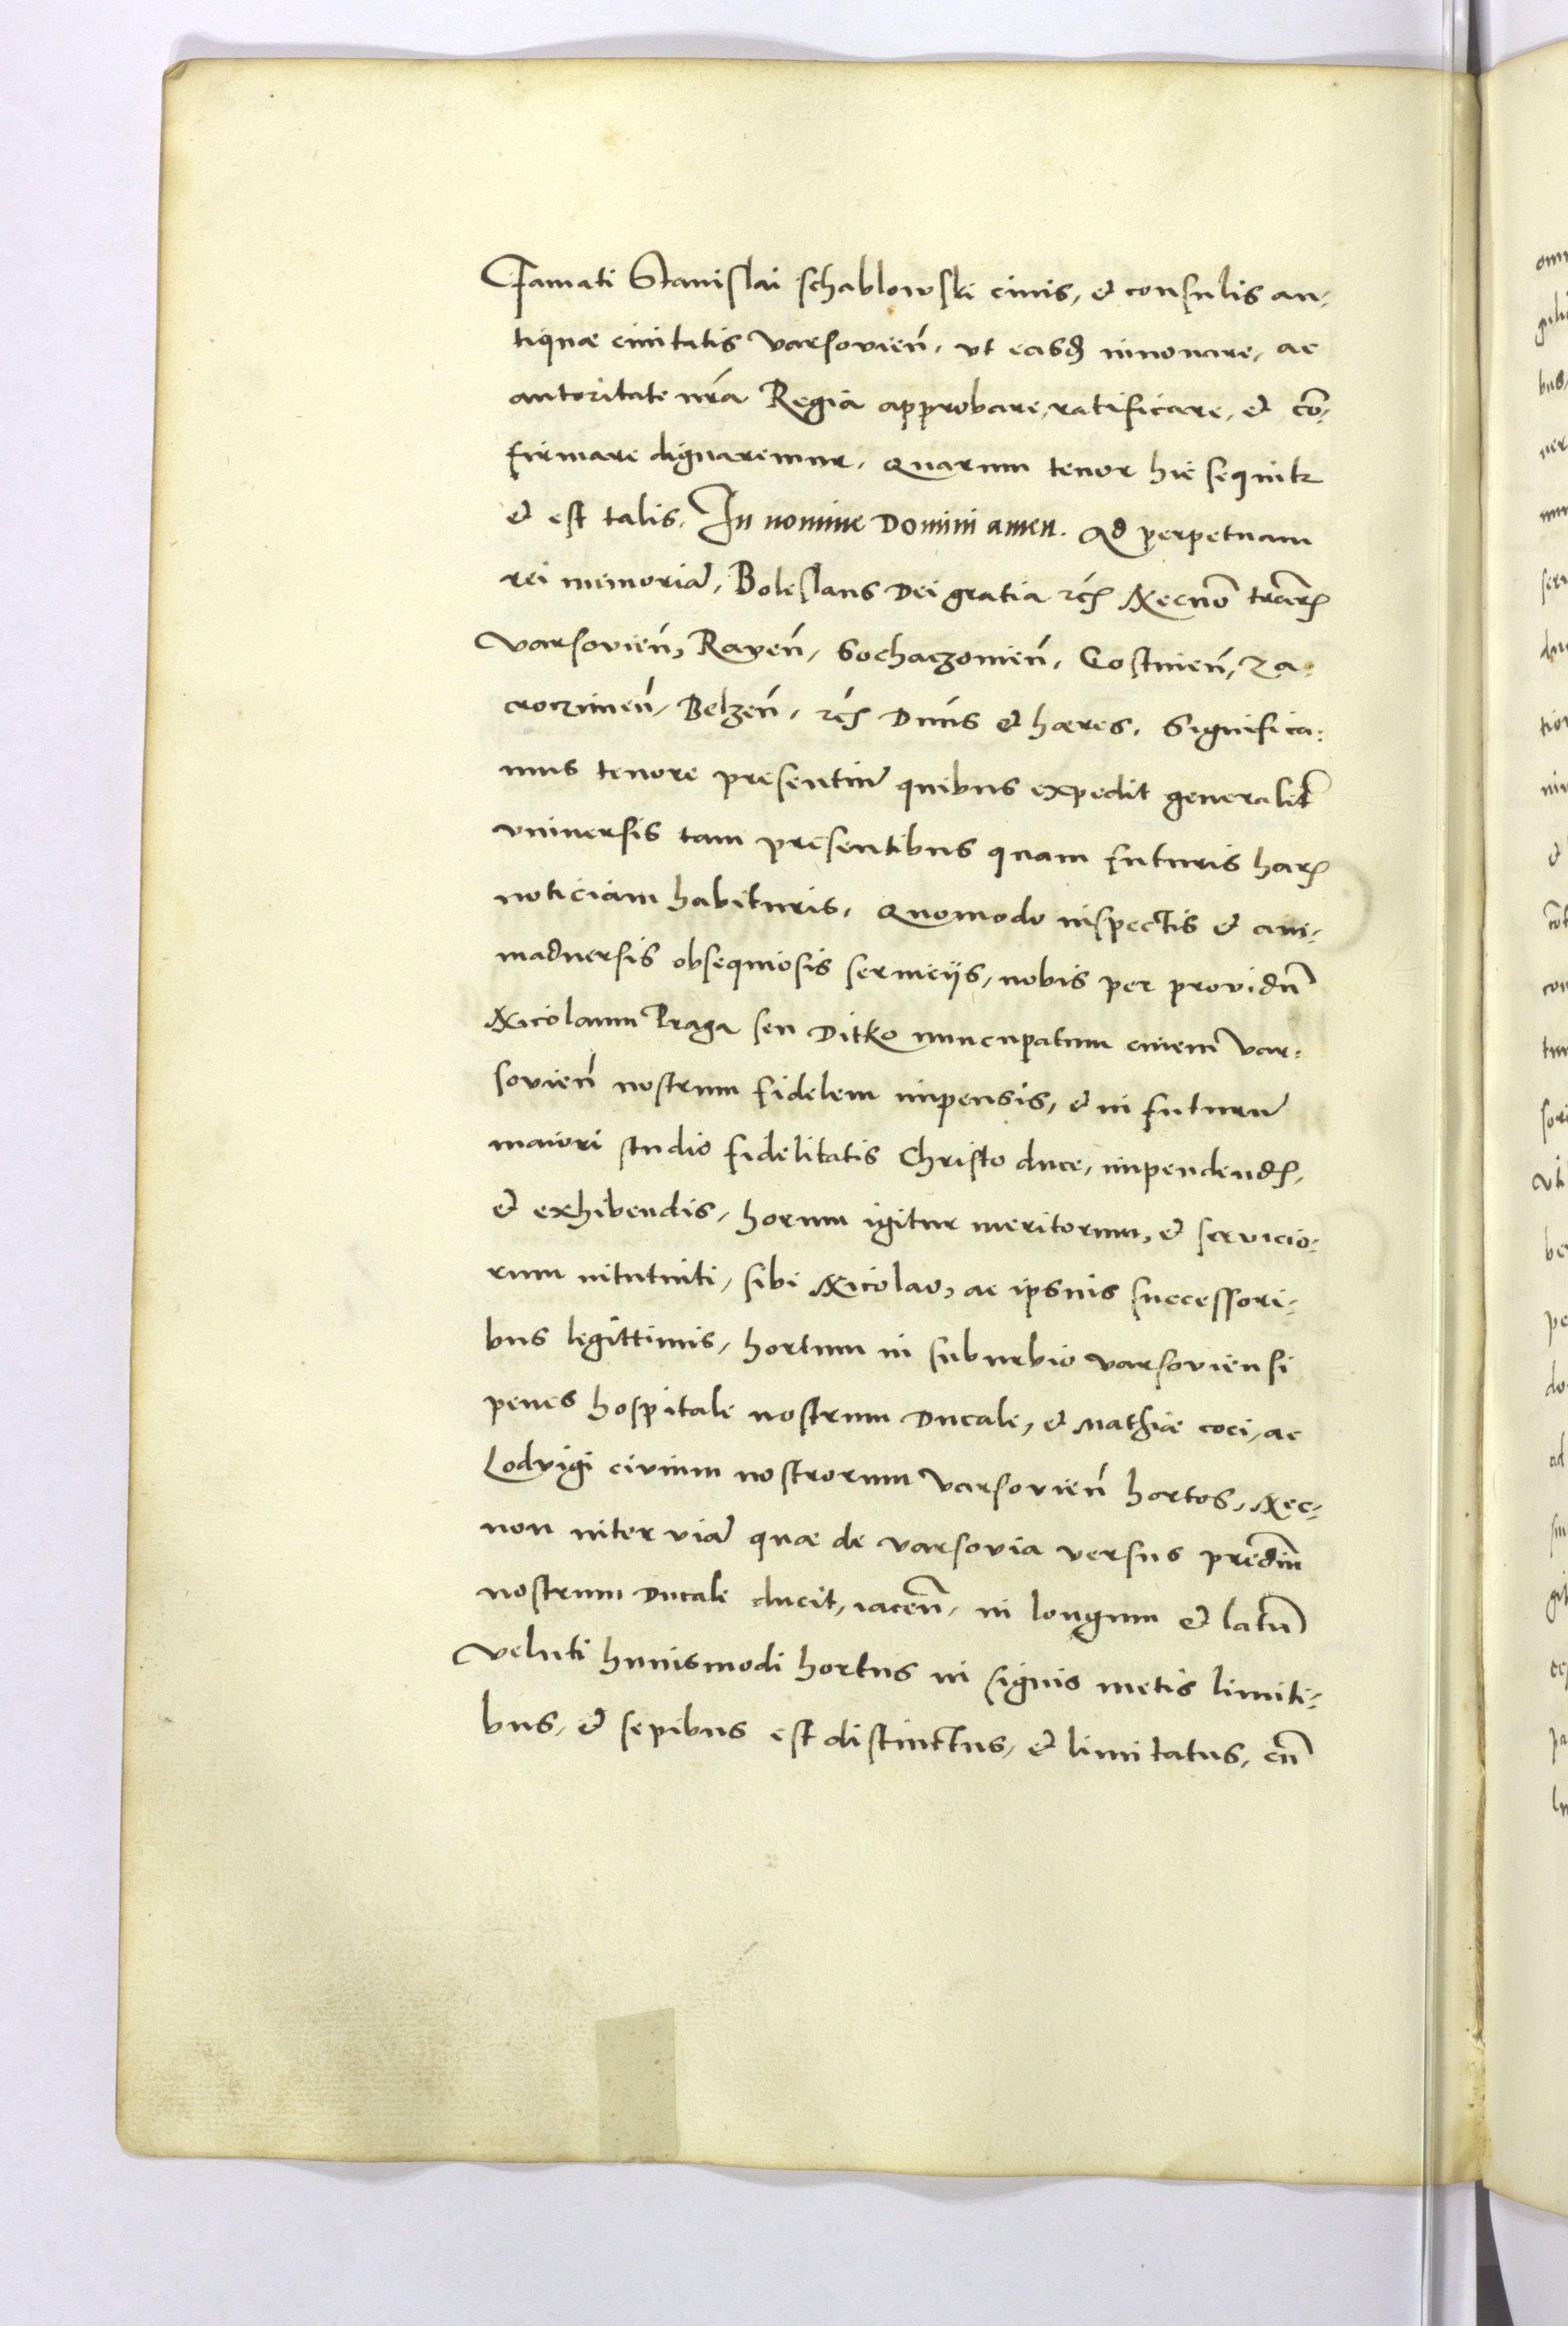 Famati Stanislai Schablowski ciuis, et consulis an-
tiquæ ciuitatis Varsovien̄. vt easdē innouare, ac
autoritate nr̄a Regia approbare, ratificare, et cō-
firmare dignaremur. Quarum tenor hic sequitr
et est talis. In nomine Domini amen. Ad perpetuam
rei memoriā. Boleslaus Dei gratia etc̄. Necnō terrarꝝ
Varsovien̄, Raven̄, Sochaczouien̄, Gostinen̄, Za-
crocziṁen̄, Belzen̄, etc̄ Dn̄us et hæres. Significa-
mus tenore presentiū quibus expedit generalitr̄
vniuersis tam presentibus quam futuris harꝝ
noticiam habituris. Quomodo inspectis et ani-
maduersis obsequiosis seruicijs, nobis per providū
Nicolaum Praga seu Ditko nuncupatum ciuem Var-
sovien̄ nostrum fidelem impensis, et in futurū
maiori studio fidelitatis Christo duce, impendendꝭ,
et exhibendis, horum igitur meritorum, et servicio-
rum intuitu, sibi Nicolao, ac ipsius successori-
bus legittimis, hortum in suburbio Varsoviensi
penes hospitale nostrum Ducale, et Mathiæ coci, ac
Lodvigi civium nostrorum Varsovien̄ hortos, Nec-
non inter viā quæ de Varsovia versus prediū
nostrum Ducale ducit, iacen̄, in longum et latū
Veluti huiusmodi hortus in signis metis limiti-
bus, et sepibus est distinctus, et limitatus, cū